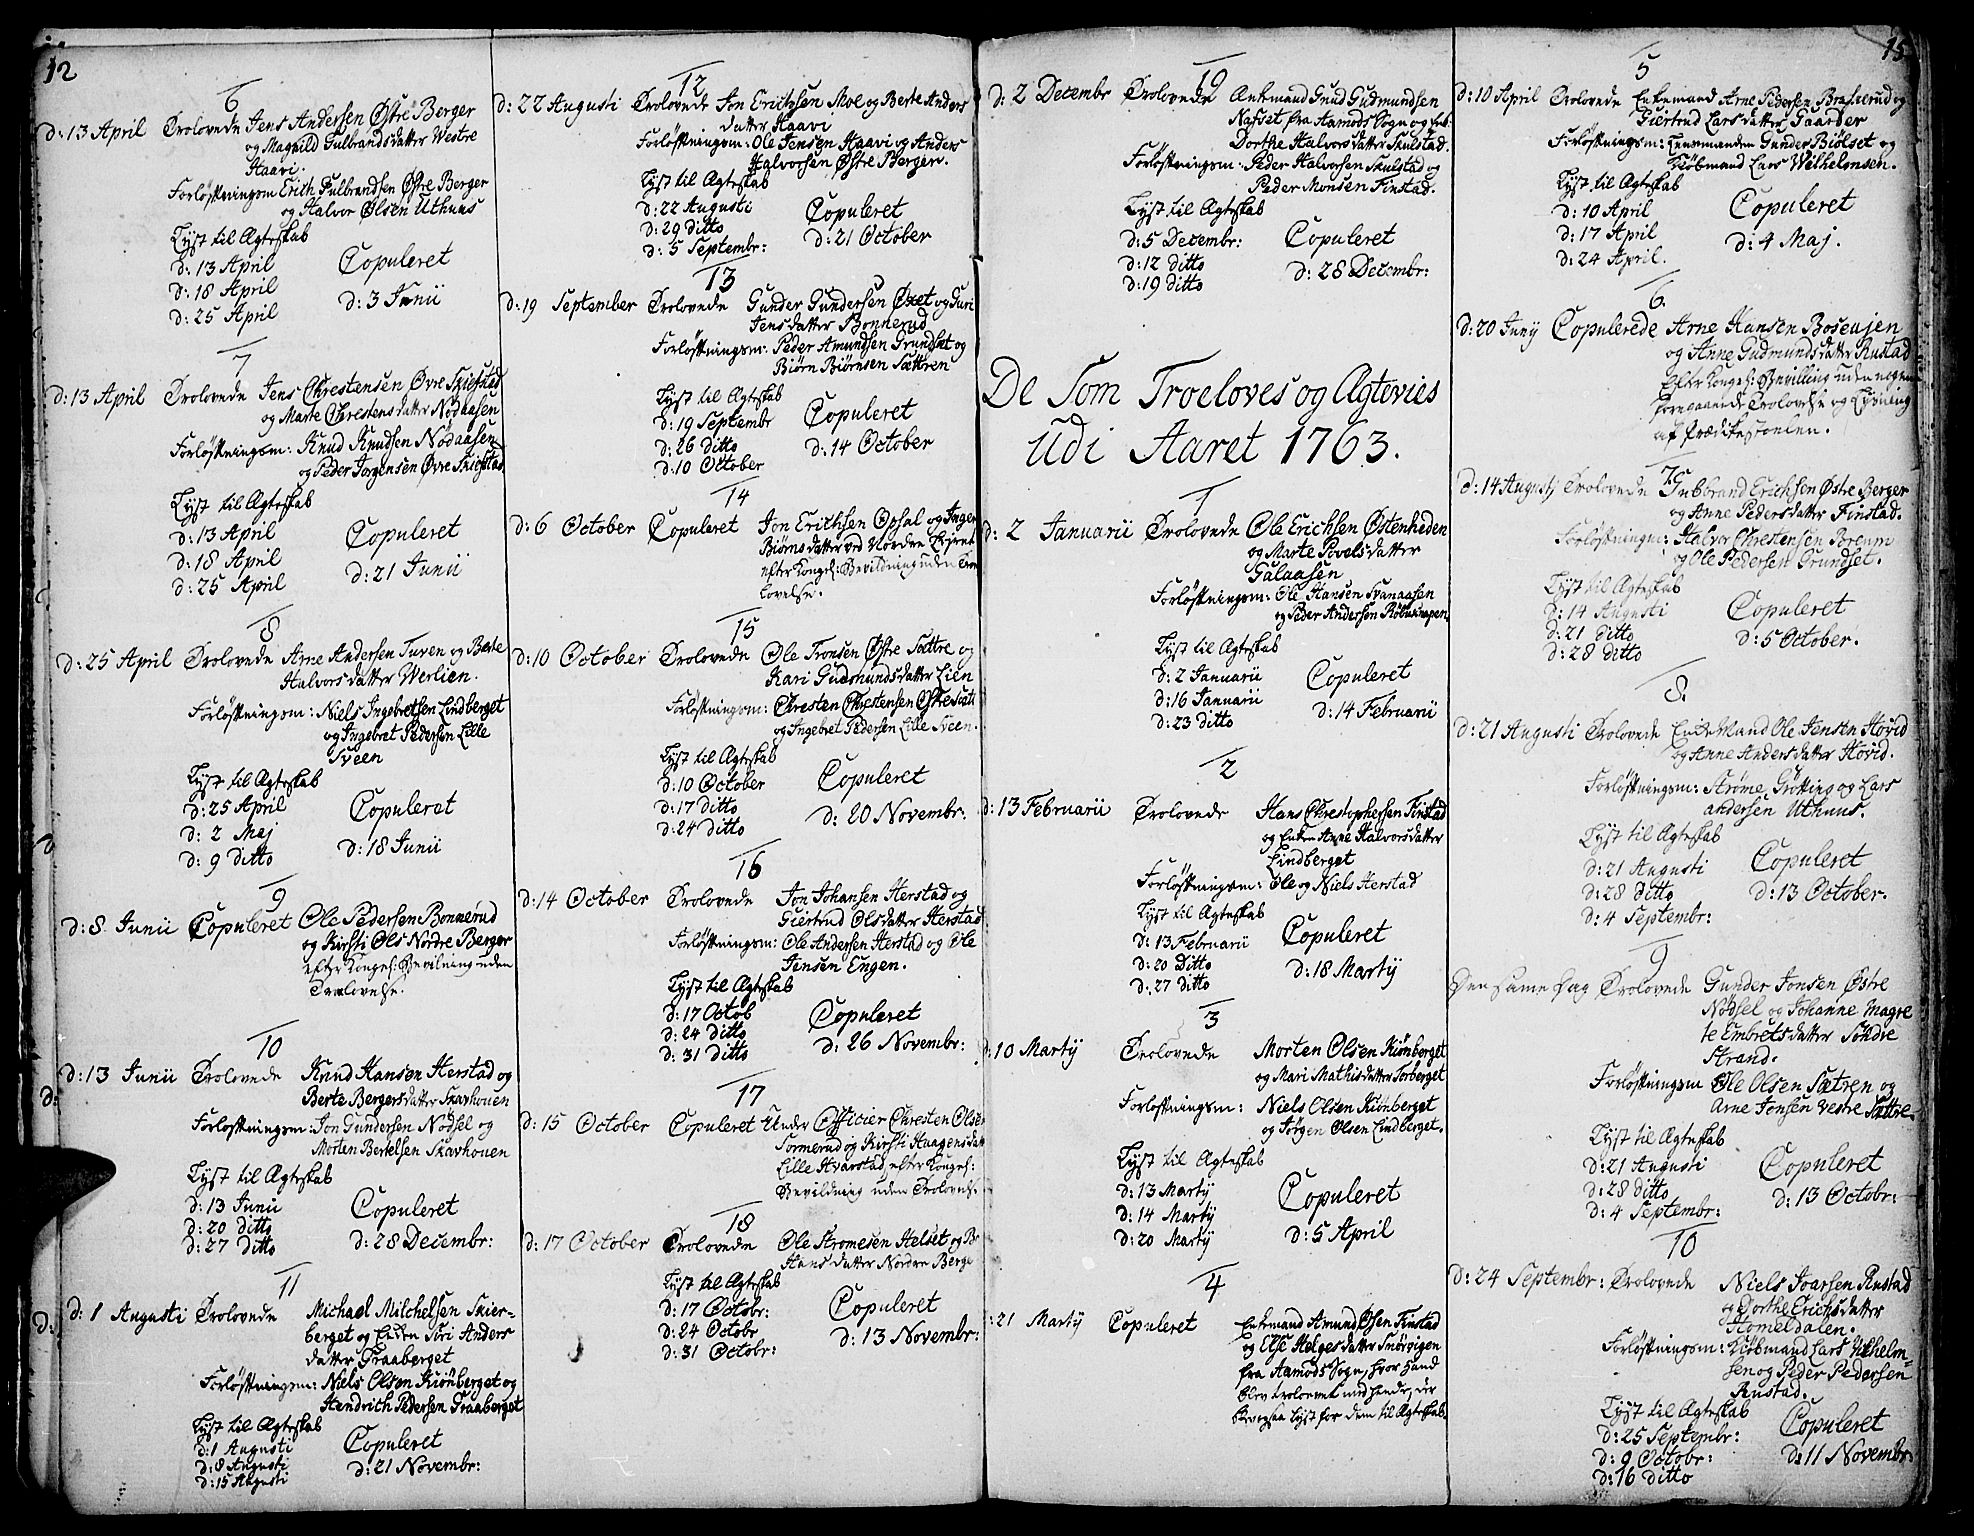 12
6
d: 13 April Trolovede Jens Andersen Østre Berger
og Magnild Gulbrandsdatter Westre
Haavi.
Forløftningsm Erich Gulbrandsen Østre Berger
og Halvor Olsen Uthuus
Lyst til Ægteskab
d: 13 April Copuleret
d: 18 April d: 3 Junii
d: 25 April
7
d: 13 April Trolovede Jens Chrestensen Øvre Skiefstad
og Marte Chrestensdatter Nødaasen
Forløftningsm: Knud Knudsen Nødaasen
og Peder Jorgensen Øvre Skiefstad
Lyst til Ægteskab
d: 13 April Copuleret
d: 18 April d: 21 Junii
d: 25 April
8
d: 25 April Trolovede Arne Andersen Tuven og Berte
Halvors datter Werlien.
Forløftningsm: Niels Ingebretsen Lindberget
og Ingebret Pedersen Lille
Sveen
Lyst til Ægteskab
d: 25 April Copuleret
d: 2 Maj d: 18 Junii
d: 9 ditto
9
d: 8 Junii Copuleret Ole Pedersen Bonnerud
og Kirsti Ols Nordre Berger
efter Kongel: Bevilning uden
Trolovelse.
10
d: 13 Junii Trolovede Knud Hansen Herstad og
Berte Bergersdatter Skavhouen
Forløftningsm: Jon Gundersen Nødsel og
Morten Bertelsen Skavhouen
Lyst til Ægteskab
d: 13 Junii Copuleret
d: 20 ditto d: 28 Decembr:
d: 27 ditto
11
d: 1 Augusti Trolovede Michael Milchelsen Skier-
berget og Enken Siri Anders
datter Graaberget
Forløftningsm: Niels Olsen Kiønberget og
Hendrich Pedersen Graaberget
Lyst til Ægteskab
d: 1 Augusti Copuleret
d: 8 Augusti d: 21 Novembr:
d: 15 Augusti
12
d: 22 Augusti Trolovede Jon Erichsen Moe og Berte Anders
datter Haavi
Forløftningsm: Ole Jensen Haavi og Anders
Halvorsen Østre Berger.
Lyst til Ægteskab
d: 22 Augusti Copuleret
d: 29 ditto d: 21 October
d: 5 Septembr:
13
d: 19 September Trolovede Gunder Gundersen Øxet og Guri
Jensdatter Bonnerud
Forløftningsm: Peder Amundsen Grundset og
Biørn Biørnsen Sættren
Lyst til Ægteskab
d: 19 Septembr Copuleret
d: 26 ditto d: 14 October
d: 10 October
14
d: 6 October Copuleret Jon Erichsen Opsal og Inger
Biørnsdatter ved Nordre Kiernet
efter Kongel: Bevildning uden Troe
lovelse.
15
d: 10 October Trolovede Ole Tronsen Østre Sættre og
Kari Gudmundsdatter Lien
Forløftningsm: Chresten Chrestensen Østresæt
og Ingebret Pedersen Lille Sveen.
Lyst til Ægteskab
d: 10 October Copuleret
d: 17 ditto d: 20 Novembr:
d: 24 ditto
16
d: 14 October Trolovede Jon Johansen Herstad og
Giertrud Olsdatter Herstad
Forløftningsm: Ole Andersen Herstad og Ole
Jensen Engen.
Lyst til Ægteskab
d: 17 Octob Copuleret
d: 24 ditto d: 26 Novembr:
d: 31 ditto
17
d: 15 October Copuleret Under Officier Chresten Olsen
Sormerud og Kirsti Haagensdat
Lille Hvarstad efter Kongel:
Bevildning uden Trolovels.
18
d: 17 October Trolovede Ole Stromesen Helset og Be
Hans datter Nordre Berge
Lyst til Ægteskab
d: 17 Octobr: Copuleret
d: 24 Octobr d: 13 Novembr:
d: 31 Octobr:
19
d: 2 Decembr Trolovede Enkemand Gnud Gudmundsen
Nafset fra Aamods Sogn og Enk:
Dorthe Halvorsdatter Skulstad.
Forløftningsm: Peder Halvorsen Skulstad og
Peder Monsen Finstad.
Lyst til Ægteskab
d: 5 Decembr: Copuleret
d: 12 ditto d: 28 Decembr:
d: 19 ditto
De Som Troeloves og Ægtevies
Udi Aaret 1763.
1
d: 2 Januarii Trolovede Ole Erichsen Østenheden
og Marte Povelsdatter
Galaasen
Forløftningsm: Ole Hansen Svanaasen
og Peder Andersen
Lyst til Ægteskab
d: 2 Januarii Copuleret
d: 16 Januarii d: 14 Februarii
d: 23 ditto
2
d: 13 Februarii Trolovede Hans Chrestophersen Finstad
og Enken Anne Halvorsdatter
Lindberget
Forløftningsm: Ole og Niels Herstad
Lyst til Ægteskab
d: 13 Februarii Copuleret
d: 20 Ditto d: 18 Martij
d: 27 ditto
3
d: 10 Martij Trolovede Morten Olsen Kiønberget
og Mari Mathisdatter Torberget
Forløftningsm: Niels Olsen Kiønberget
og Jørgen Olsen Lindberget.
Lyst til Ægteskab
d: 13 Martij Copuleret
d: 14 Martij d: 5 April
d: 20 Martij
4
: 21 Martij Copuleret Enkemand Amund Olsen Rustad
og Else Helgesdatter Snørvigen
fra Aamods Sogn, hvor hand
blev troloevet med hende, der
blev og saa lyst for dem til Ægteskab.
15
5
d: 10 April Trolovede Enkemand Arne Pedersen Braskerud og
Giertrud Larsdatter Gaarder
Forløftningsm: Lensmanden Gunder Biølset og
Kiøbmand Lars Wilhelmsen.
Lyst til Ægteskab
d: 10 April Copuleret
d: 17 April d: 4 Maj.
d: 24 April.
6.
d: 20 Junij Copulerede Arne Hansen Boseiejen
og Anne Gudmundsdatter Rustad
Efter Kongel: Bevilling uden nogen
foregaaende Trolovelse og Lysning
af Prædikestoelen.
7
d: 14 Augustij Trolovede Gulbrand Erichsen Østre Berger
og Anne Pedersdatter Finstad.
Forløftningm: Halvor Chrestensen Sorenm
og Ole Pedersen Grundset.
Lyst til Ægteskab
d: 14 Augusti Copuleret
d: 21 ditto d: 5 October.
d: 28 ditto
8.
d: 21 Augusti Trolovede Enkemand Ole Jensen Hovid
og Anne Andersdatter Hovid.
Forløftningsm: Strøme Grøtting og Lars
andersen Uthuus.
Lyst til Ægteskab
d: 21 Augusti Copuleret
d: 28 ditto d: 13 October.
d: 4 Septembr:
9
Den samme dag Trolovede Gunder Jonsen Østre
Nødsel og Johanne Magre
te Embretsdatter Søndre
Strand.
Forløftningsm Ole Olsen Sætren og
Arne Jonsen Vestre Sættre
Lyst til Ægteskab
d: 21 Augusti Copuleret
d: 28 ditto d: 13 Octobr:
d: 4 Septembr:
10
d: 24 Septembr: Trolovede Niels Joarsen Rustad
og Dorthe Erichsdatter
Stomeldalen.
Forløftningsm: Kiøbmand Lars Wilhelm=
sen og Peder Pedersen
Rustad.
Lyst til Ægteskab
d: 25 Septembr: Copuleret
d: 9 Octobr: d: 11 Novembr:
d: 16 ditto